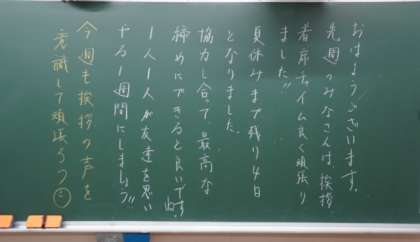 おはようございます。
先週のみなさんは、挨拶、
着席チャイム良く頑張り
ました!!
夏休みまで残り4日
となりました。
協力し合って、最高な
締めにできると良いです。
1人1人が友達を思い
やる1週間にしましょう!!
今週も挨拶の声を
意識して頑張ろう